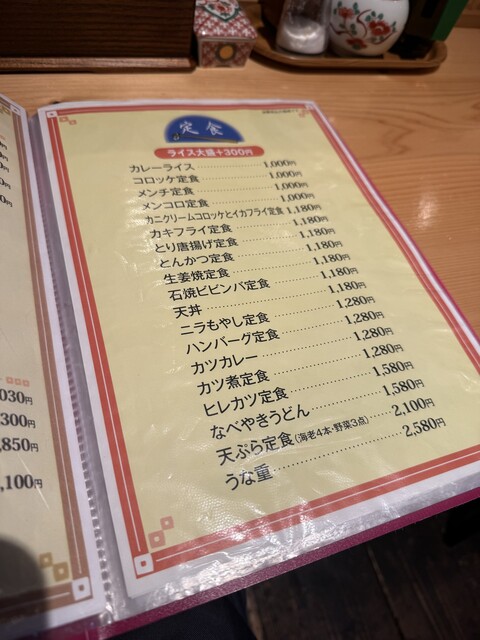 定食
ライス大盛+300円
カレーライス 1,000円
コロッケ定食 1,000円
メンチ定食 1,000円
メンコロ定食 1,000円
カニクリームコロッケとイカフライ定食 1,180円
カキフライ定食 1,180円
とり唐揚げ定食 1,180円
とんかつ定食 1,180円
生姜焼定食 1,180円
石焼ビビンバ定食 1,180円
天丼 1,180円
ニラもやし定食 1,280円
ハンバーグ定食 1,280円
カツカレー 1,280円
カツ煮定食 1,280円
ヒレカツ定食 1,580円
なべやきうどん 1,580円
天ぷら定食(海老4本・野菜3点) 2,100円
うな重 2,580円
030円
300円
,850円
,100円